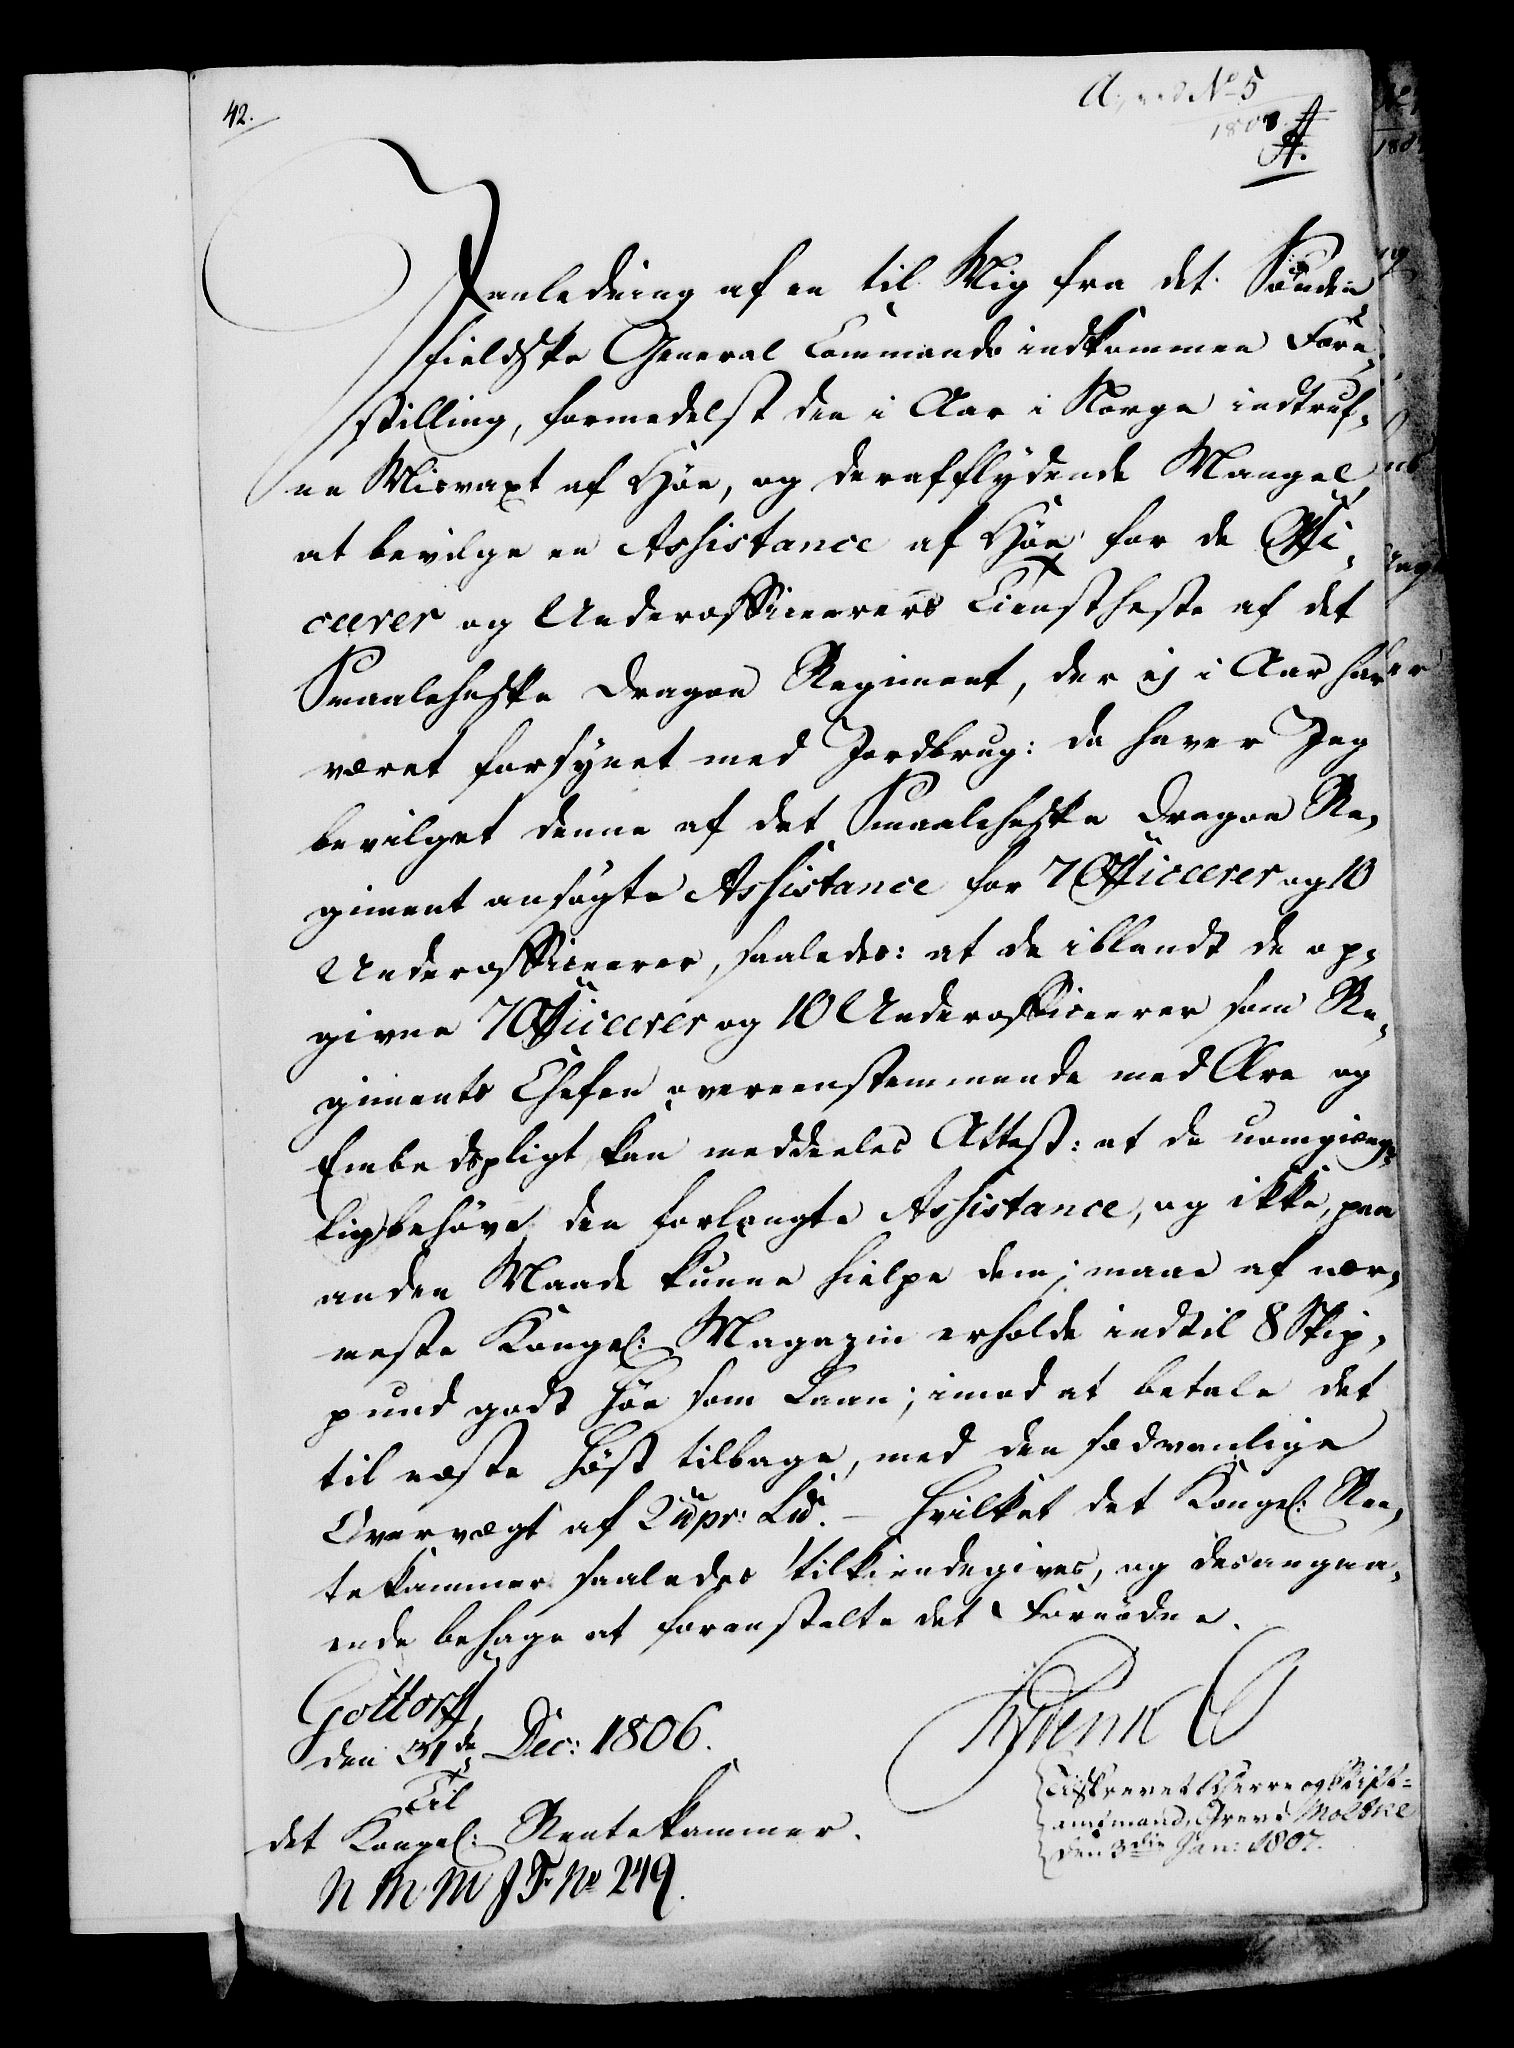 42.
No 5
180
A.
Anledning af en til Mig fra det Sönden
fieldske General Commando indkommen Fore,
stilling, formedelst den i Aar i Norge indtruf,
ne Misvaxt af Höe, og derafflydende Mangel,
at bevilge en Assistance af Höe for de Offi,
ceerer og Underofficeerers Tienstheste af det
Smaalehnske Dragon Regiment, der ej i Aar har
været forsynet med Jordbrug: da haver Jeg
bevilget denne af det Smaalehnske Dragon Re,
giment ansögte Assistance for 7 Officeerer og 10
Underofficeerer, saaledes: at de iblandt de op,
givne 7 Officeerer og 10 Underofficeerer som Re,
giments Chefen overeenstemmende med Ære og
Embedspligt kan meddeeles Attest: at de uomgiæng,
lig behöve den forlangte Assistance, og ikke paa
anden Maade kunne hielpe dem; maae af nær,
meste Kongel: Magazin erholde indtil 8 Skip,
pund godt Höe som Laan; imod at betale det
til næste Höst tilbage, med den sædvanlige
Overvægt af 2 ℔ pr: L℔. – Hvilket det Kongel: Ren,
tekammer saaledes tilkiendegives, og desangaa,
ende behage at foranstalte det Fornödne.
Gottorff,
den 31de Dec: 1806.
Friderich
Til
det Kongel: Rentekammer.
Tilskrevet Kherre og Stift=
amtmand, Greve Moltke
den 3die Jan: 1807.
N M M J T No 249.